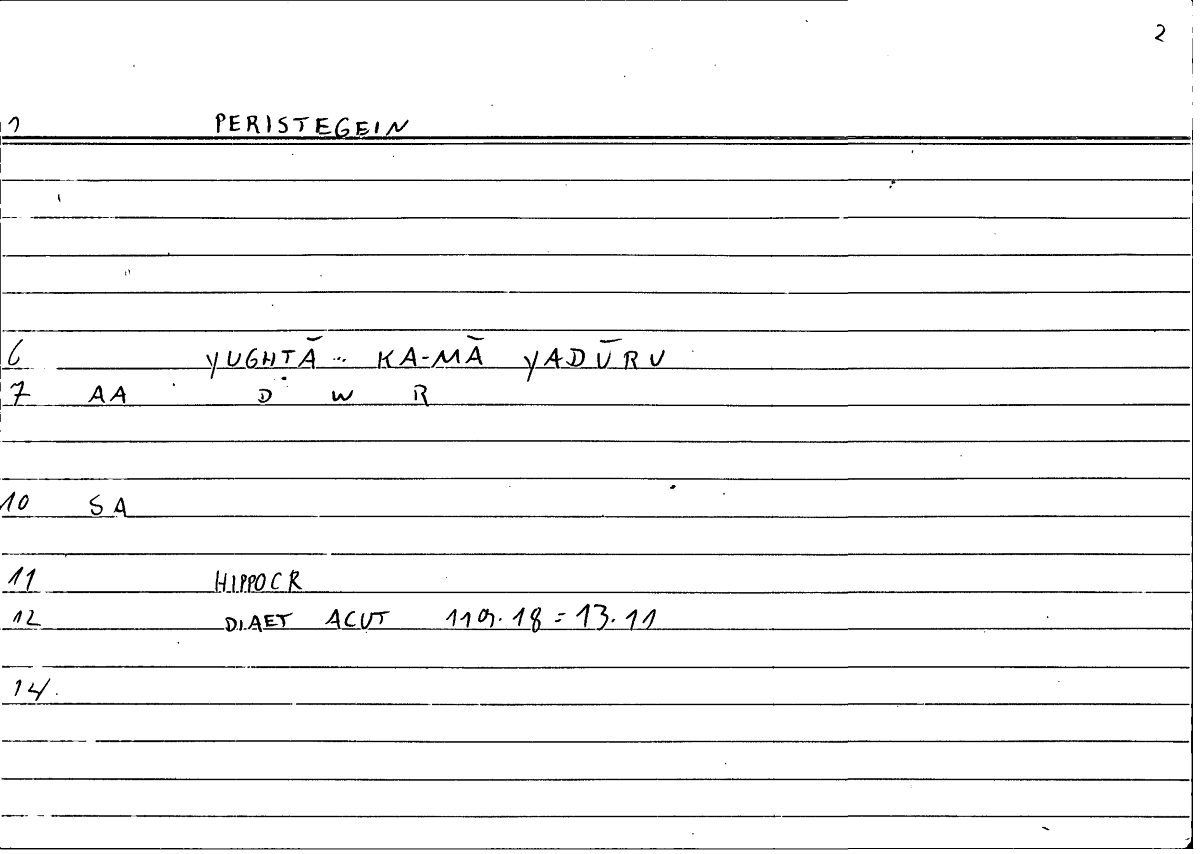 2
1 PERISTEGEIN
6 YUGHTĀ... KA-MĀ YADŪRU
7 AA D W R
10 SA
11 HIPPOCR
12 DIAET ACUT 119.18 = 13.11
14.